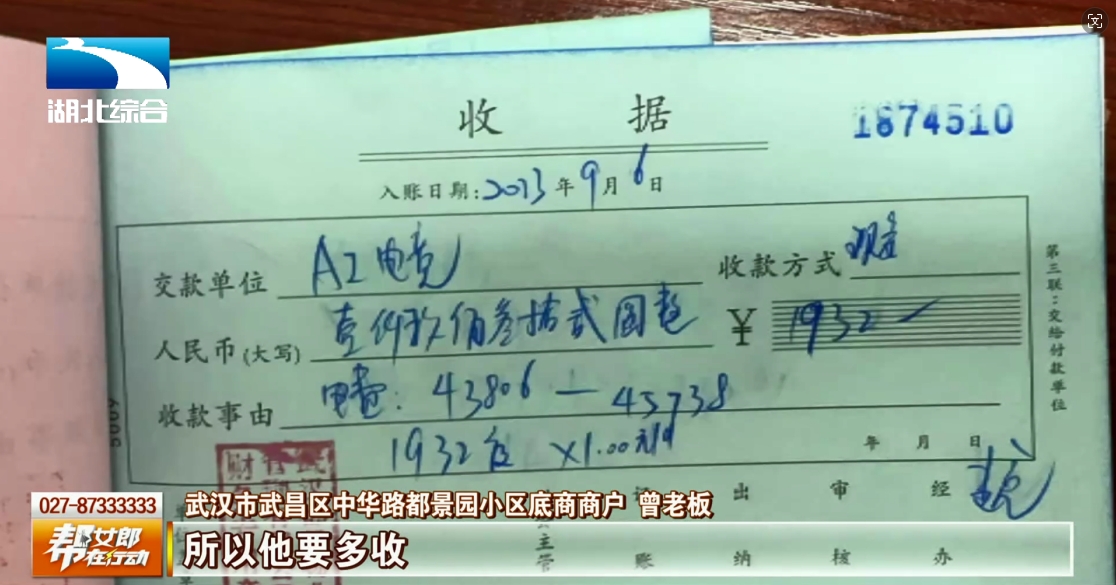 湖北综合
收 据
1874510
入账日期:2023年9月6日
交款单位 A2电费
收款方式 现金
人民币(大写) 壹仟玖佰叁拾贰圆整
¥ 1932
收款事由 电费: 43806 — 45738
1932度 ×1.00元/度
年 月 日
第三联:交给付款单位
主管 账 出纳 审核 经办
027-87333333
帮女郎在行动
武汉市武昌区中华路都景园小区底商商户 曾老板
所以他要多收